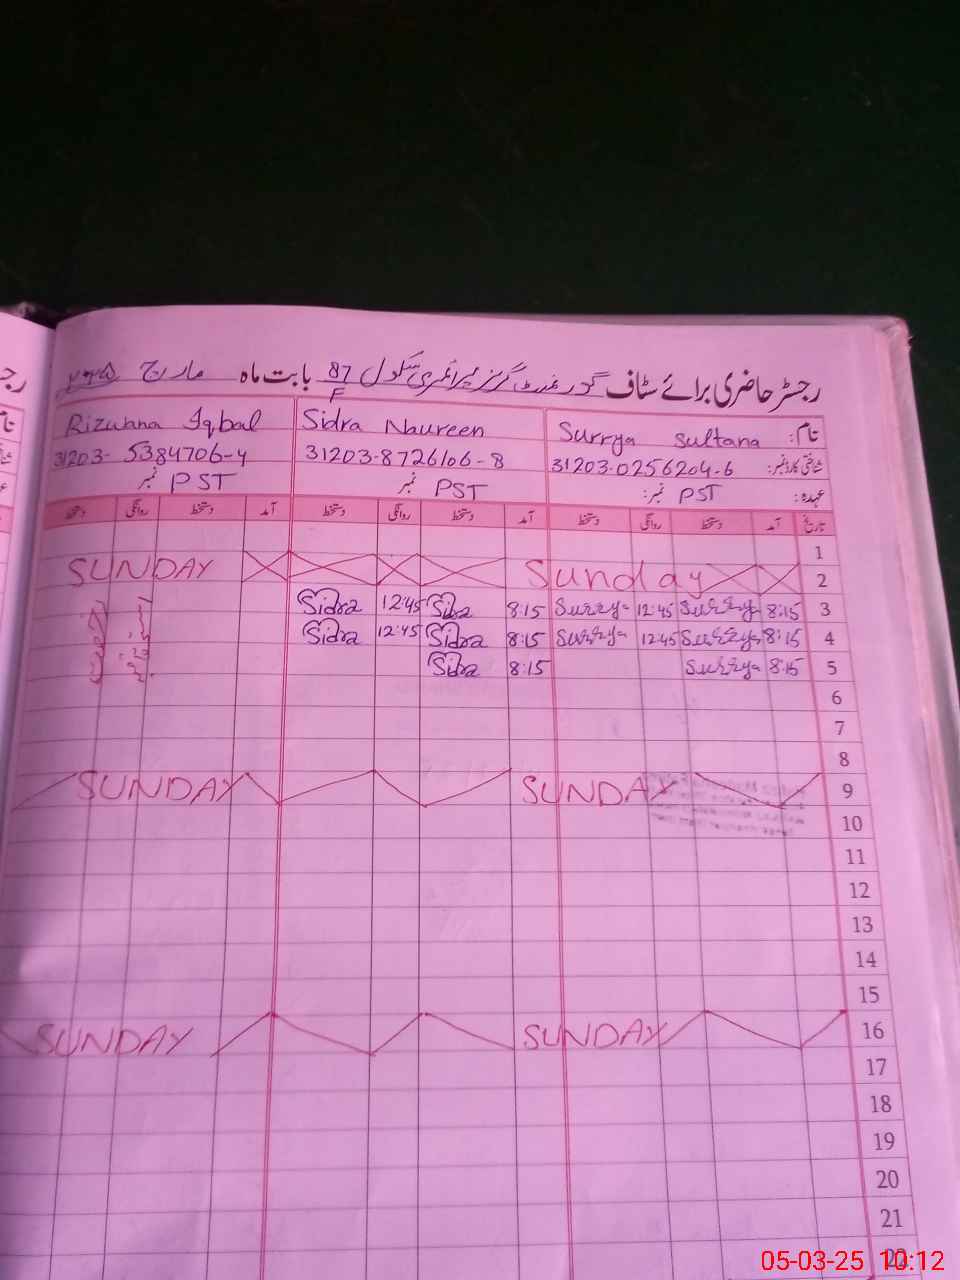 رجسٹر حاضری برائے سٹاف گورنمنٹ گرلز پرائمری سکول 87/F بابت ماہ مارچ ۲۰۲۵
نام: Surrya Sultana Sidra Naureen Rizwana Iqbal
شناختی کارڈ نمبر: 31203-0256204-6 31203-8726106-8 31203-5384706-4
عہدہ: PST نمبر: PST نمبر PST نمبر
تاریخ آمد دستخط روانگی دستخط آمد دستخط روانگی دستخط آمد دستخط روانگی دستخط
1
2 Sunday SUNDAY
3 8:15 Surrya 12:45 Surrya 8:15 Sidra 12:45 Sidra
4 8:15 Surrya 12:45 Surrya 8:15 Sidra 12:45 Sidra
5 8:15 Surrya 8:15 Sidra
6
7
8
9 SUNDAY SUNDAY
10
11
12
13
14
15
16 SUNDAY SUNDAY
17
18
19
20
21
22
05-03-25 10:12